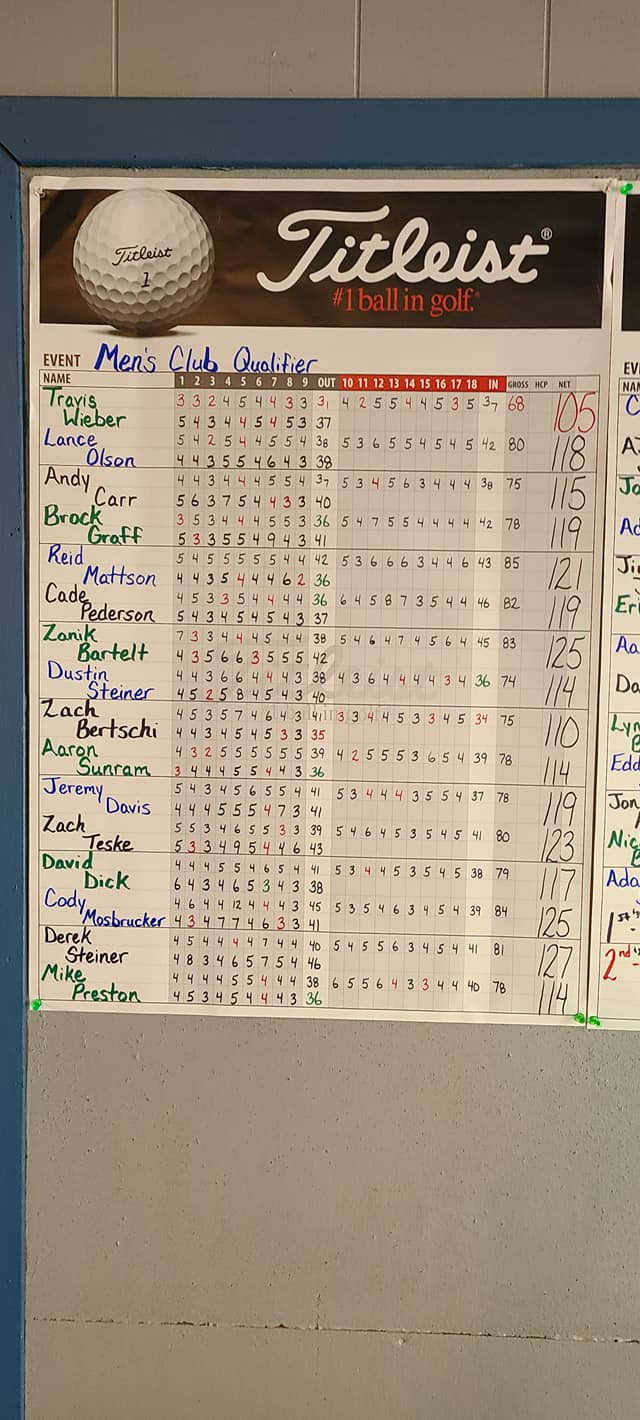 Titleist
1
Titleist®
#1 ball in golf.®
EVENT Men's Club Qualifier
NAME 1 2 3 4 5 6 7 8 9 OUT 10 11 12 13 14 15 16 17 18 IN GROSS HCP NET
Travis 3 3 2 4 5 4 4 3 3 31 4 2 5 5 4 4 5 3 5 37 68 105
Wieber 5 4 3 4 4 5 4 5 3 37
Lance 5 4 2 5 4 4 5 5 4 38 5 3 6 5 5 4 5 4 5 42 80 118
Olson 4 4 3 5 5 4 6 4 3 38
Andy 4 4 3 4 4 4 5 5 4 37 5 3 4 5 6 3 4 4 4 38 75 115
Carr 5 6 3 7 5 4 4 3 3 40
Brock 3 5 3 4 4 4 5 5 3 36 5 4 7 5 5 4 4 4 4 42 78 119
Graff 5 3 3 5 5 4 9 4 3 41
Reid 5 4 5 5 5 5 5 4 4 42 5 3 6 6 6 3 4 4 6 43 85 121
Mattson 4 4 3 5 4 4 4 6 2 36
Cade 4 5 3 3 5 4 4 4 4 36 6 4 5 8 7 3 5 4 4 46 82 119
Pederson 5 4 3 4 5 4 5 4 3 37
Zanik 7 3 3 4 4 4 5 4 4 38 5 4 6 4 7 4 5 6 4 45 83 125
Bartelt 4 3 5 6 6 3 5 5 5 42
Dustin 4 4 3 6 6 4 4 4 3 38 4 3 6 4 4 4 4 3 4 36 74 114
Steiner 4 5 2 5 8 4 5 4 3 40
Zach 4 5 3 5 7 4 6 4 3 41 3 3 4 4 5 3 3 4 5 34 75 110
Bertschi 4 4 3 4 5 4 5 3 3 35
Aaron 4 3 2 5 5 5 5 5 5 39 4 2 5 5 5 3 6 5 4 39 78 114
Sunram 3 4 4 4 5 5 4 4 3 36
Jeremy 5 4 3 4 5 6 5 5 4 41 5 3 4 4 4 3 5 5 4 37 78 119
Davis 4 4 4 5 5 5 4 7 3 41
Zach 5 5 3 4 6 5 5 3 3 39 5 4 6 4 5 3 5 4 5 41 80 123
Teske 5 3 3 4 9 5 4 4 6 43
David 4 4 4 5 5 4 6 5 4 41 5 3 4 4 5 3 5 4 5 38 79 117
Dick 6 4 3 4 6 5 3 4 3 38
Cody 4 6 4 4 12 4 4 4 3 45 5 3 5 4 6 3 4 5 4 39 84 125
Mosbrucker 4 3 4 7 7 4 6 3 3 41
Derek 4 5 4 4 4 4 7 4 4 40 5 4 5 5 6 3 4 5 4 41 81 127
Steiner 4 8 3 4 6 5 7 5 4 46
Mike 4 4 4 4 5 5 4 4 4 38 6 5 5 6 4 3 3 4 4 40 78 114
Preston 4 5 3 4 5 4 4 4 3 36